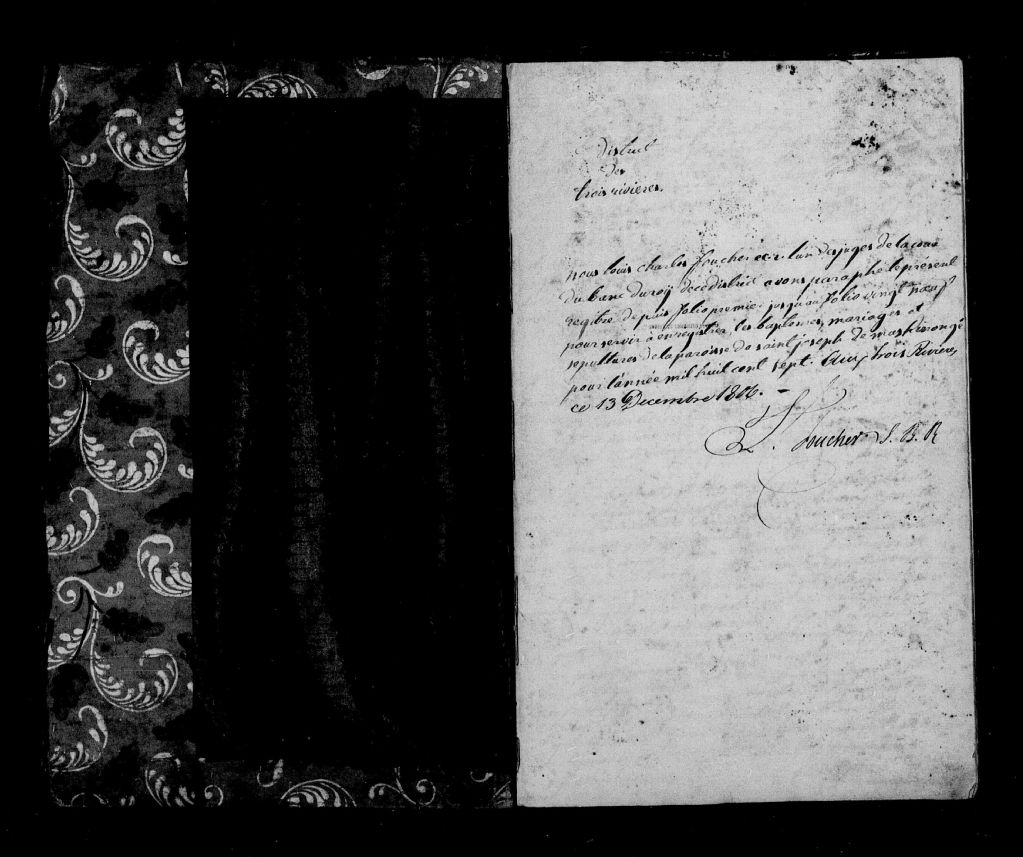 District
des
trois rivieres.
Nous louis charles foucher ecr l'un des juges de la cour
du banc du roy de ce district avons paraphé le présent
regitre depuis folio premier jusqu'au folio vingt neuf
pour servir à enregistrer les baptemes, mariages et
sepultures de la paroisse de saint joseph de maskinongé
pour l'année mil huit cent sept. Aux trois Rivieres
ce 13 Decembre 1806. -
L. Foucher J. B. R